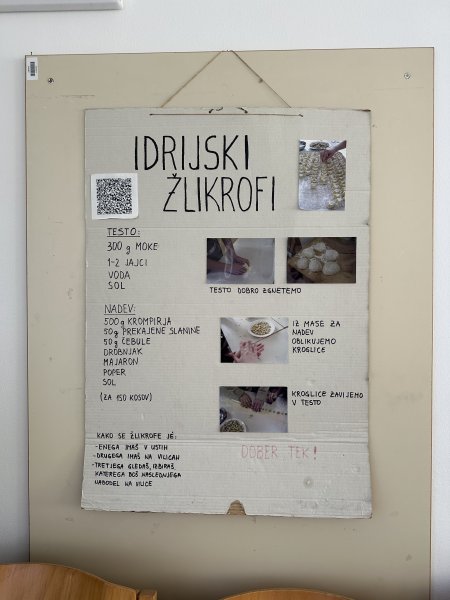 IDRIJSKI
ŽLIKROFI
TESTO:
300 g MOKE
1-2 JAJCI
VODA
SOL
TESTO DOBRO ZGNETEMO
NADEV:
500 g KROMPIRJA
50 g PREKAJENE SLANINE
50 g ČEBULE
DROBNJAK
MAJARON
POPER
SOL
(ZA 150 KOSOV)
IZ MASE ZA
NADEV
OBLIKUJEMO
KROGLICE
KROGLICE ZAVIJEMO
V TESTO
KAKO SE ŽLIKROFE JÉ:
-ENEGA IMAŠ V USTIH
-DRUGEGA IMAŠ NA VILICAH
-TRETJEGA GLEDAŠ, IZBIRAŠ
KATEREGA BOŠ NASLEDNJEGA
NABODEL NA VILICE
DOBER TEK!